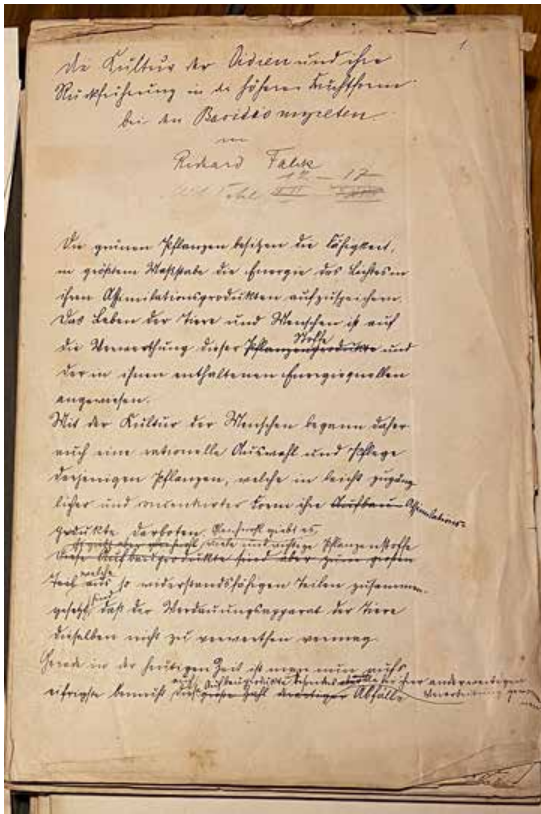 1.
Die Kultur der Oidien und ihre
Rückführung in die höhere Fruchtform
bei den Basidiomyceten
von
Richard Falck
12 – 17
Die grünen Pflanzen besitzen die Fähigkeit,
in größtem Maßstabe die Energie des Lichtes in
ihren Assimilationsprodukten aufzuspeichern.
Das Leben der Tiere und Menschen ist auf
die Verwerthung dieser Pflanzenprodukte Stoffe und
der in ihnen enthaltenen Energiequellen
angewiesen.
Mit der Kultur der Menschen begann daher
auch eine rationelle Auswahl und Pflege
derjenigen Pflanzen, welche in leicht zugäng
licher und concentrirter Form ihre Aufbau Assimilations-
produkte darboten. giebt es
viele und wichtige Pflanzenstoffe
Diese Aufbauprodukte sind aber zum großen
Teil welche aus so widerstandsfähigen Teilen zusammen-
gesetzt sind, daß der Verdauungsapparat der Tiere
dieselben nicht zu verwerthen vermag.
Gerade in der heutigen Zeit ist man nun aufs
eifrigste bemüht diese große Zahl derartiger Abfälle